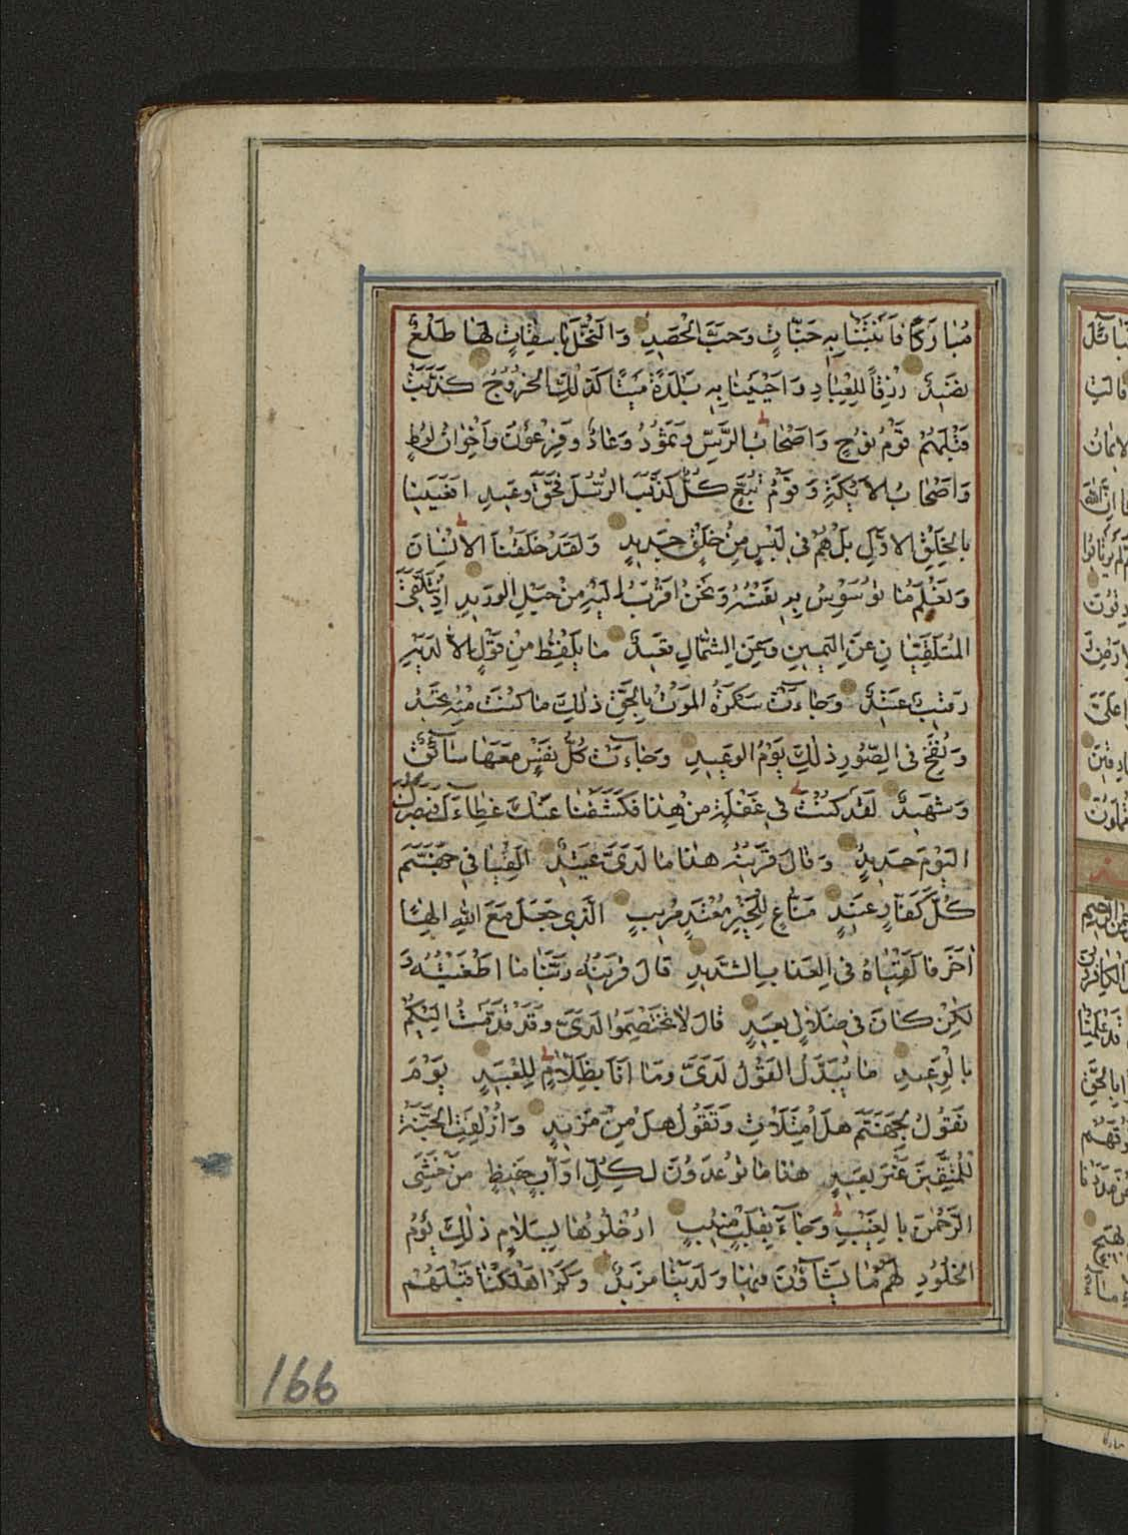 مُبَارَكًا فَاَنْبَتْنَا بِهِ جَنَّاتٍ وَحَبَّ الْحَصِيدِ وَالنَّخْلَ بَاسِقَاتٍ لَهَا طَلْعٌ
نَضِيدٌ رِزْقًا لِلْعِبَادِ وَاَحْيَيْنَا بِهِ بَلْدَةً مَيْتًا كَذٰلِكَ الْخُرُوجُ كَذَّبَتْ
قَبْلَهُمْ قَوْمُ نُوحٍ وَاَصْحَابُ الرَّسِّ وَثَمُودُ وَعَادٌ وَفِرْعَوْنُ وَاَخْوَانُ لُوطٍ
وَاَصْحَابُ الْاَيْكَةِ وَقَوْمُ تُبَّعٍ كُلٌّ كَذَّبَ الرُّسُلَ فَحَقَّ وَعِيدِ اَفَعَيِينَا
بِالْخَلْقِ الْاَوَّلِ بَلْ هُمْ فِي لَبْسٍ مِنْ خَلْقٍ جَدِيدٍ وَلَقَدْ خَلَقْنَا الْاِنْسَانَ
وَنَعْلَمُ مَا تُوَسْوِسُ بِهِ نَفْسُهُ وَنَحْنُ اَقْرَبُ اِلَيْهِ مِنْ حَبْلِ الْوَرِيدِ اِذْ يَتَلَقَّى
الْمُتَلَقِّيَانِ عَنِ الْيَمِينِ وَعَنِ الشِّمَالِ قَعِيدٌ مَا يَلْفِظُ مِنْ قَوْلٍ اِلَّا لَدَيْهِ
رَقِيبٌ عَتِيدٌ وَجَاءَتْ سَكْرَةُ الْمَوْتِ بِالْحَقِّ ذٰلِكَ مَا كُنْتَ مِنْهُ تَحِيدُ
وَنُفِخَ فِي الصُّورِ ذٰلِكَ يَوْمُ الْوَعِيدِ وَجَاءَتْ كُلُّ نَفْسٍ مَعَهَا سَائِقٌ
وَشَهِيدٌ لَقَدْ كُنْتَ فِي غَفْلَةٍ مِنْ هٰذَا فَكَشَفْنَا عَنْكَ غِطَاءَكَ فَبَصَرُكَ
الْيَوْمَ حَدِيدٌ وَقَالَ قَرِينُهُ هٰذَا مَا لَدَيَّ عَتِيدٌ اَلْقِيَا فِي جَهَنَّمَ
كُلَّ كَفَّارٍ عَنِيدٍ مَنَّاعٍ لِلْخَيْرِ مُعْتَدٍ مُرِيبٍ الَّذِي جَعَلَ مَعَ اللّٰهِ اِلٰهًا
اٰخَرَ فَاَلْقِيَاهُ فِي الْعَذَابِ الشَّدِيدِ قَالَ قَرِينُهُ رَبَّنَا مَا اَطْغَيْتُهُ وَ
لٰكِنْ كَانَ فِي ضَلَالٍ بَعِيدٍ قَالَ لَا تَخْتَصِمُوا لَدَيَّ وَقَدْ قَدَّمْتُ اِلَيْكُمْ
بِالْوَعِيدِ مَا يُبَدَّلُ الْقَوْلُ لَدَيَّ وَمَا اَنَا بِظَلَّامٍ لِلْعَبِيدِ يَوْمَ
نَقُولُ لِجَهَنَّمَ هَلِ امْتَلَاْتِ وَتَقُولُ هَلْ مِنْ مَزِيدٍ وَاُزْلِفَتِ الْجَنَّةُ
لِلْمُتَّقِينَ غَيْرَ بَعِيدٍ هٰذَا مَا تُوعَدُونَ لِكُلِّ اَوَّابٍ حَفِيظٍ مَنْ خَشِيَ
الرَّحْمٰنَ بِالْغَيْبِ وَجَاءَ بِقَلْبٍ مُنِيبٍ اُدْخُلُوهَا بِسَلَامٍ ذٰلِكَ يَوْمُ
الْخُلُودِ لَهُمْ مَا يَشَاؤُنَ فِيهَا وَلَدَيْنَا مَزِيدٌ وَكَمْ اَهْلَكْنَا قَبْلَهُمْ
166